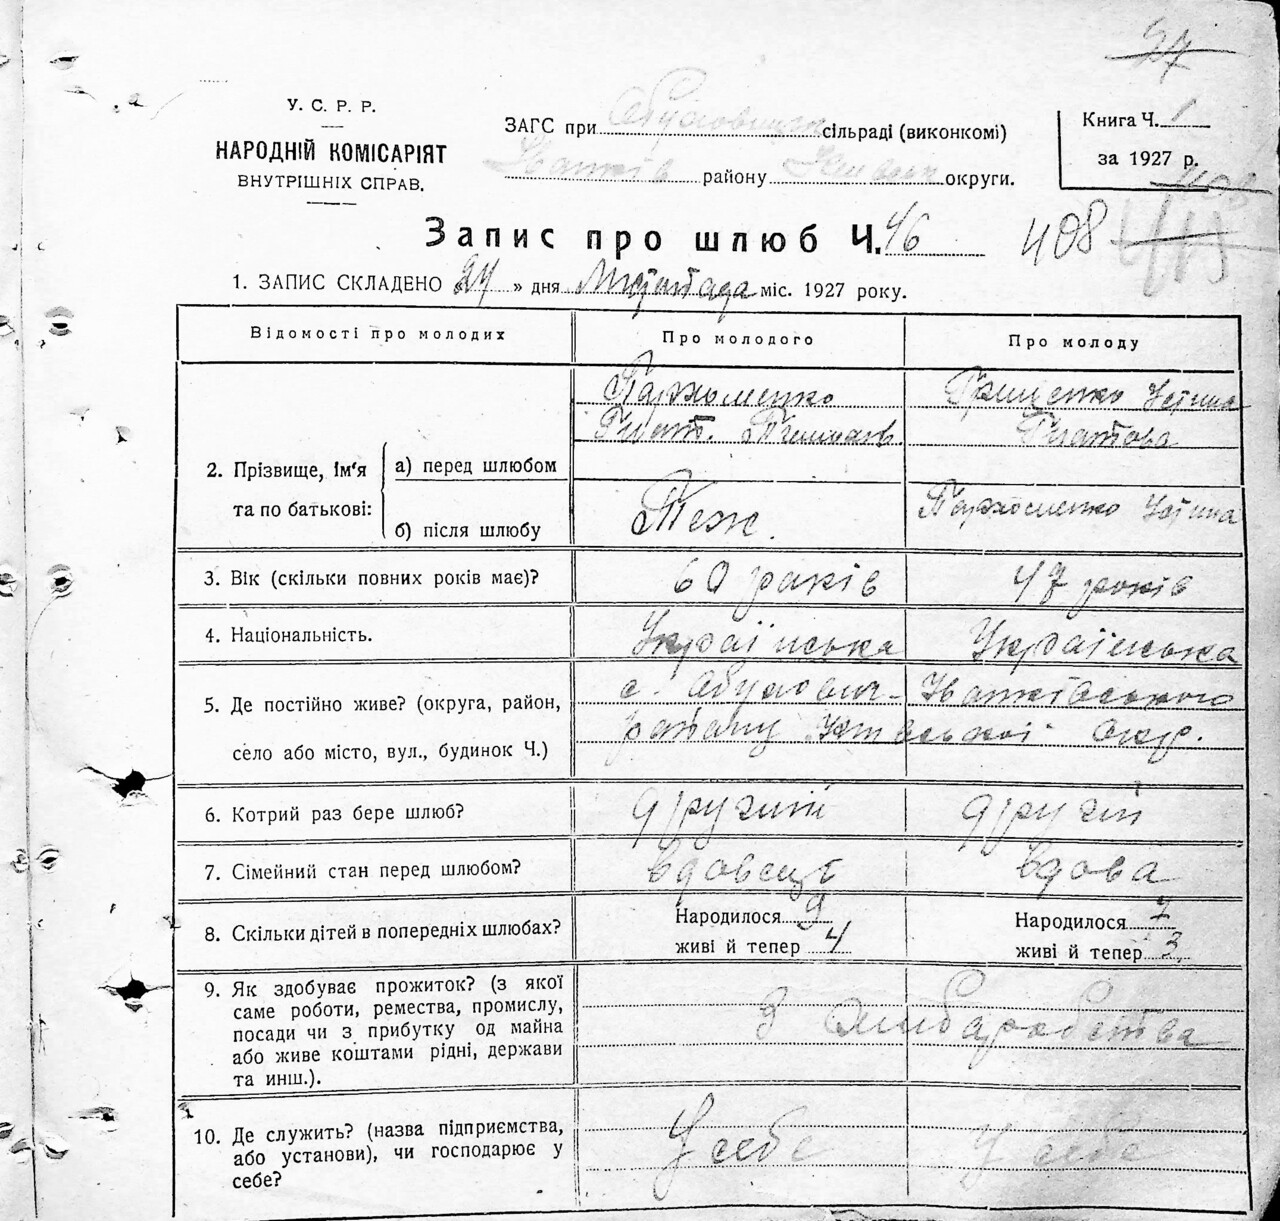 97
У. С. Р. Р.
НАРОДНІЙ КОМІСАРІЯТ
ВНУТРІШНІХ СПРАВ.
ЗАГС при Обуховицьк сільраді (виконкомі)
Іванків району Київськ округи.
Книга Ч. 1
за 1927 р.
408
Запис про шлюб Ч. 46
408 413
1. ЗАПИС СКЛАДЕНО 24 » дня Листопада міс. 1927 року.
Відомості про молодих Про молодого Про молоду
Пархоменко Грищенко Устина
Гнат. Игнатова
2. Прізвище, ім'я та по батькові:
а) перед шлюбом
б) після шлюбу Теж. Пархоменко Устина
3. Вік (скільки повних років має)? 60 років 47 років
4. Національність. Українська Українська
5. Де постійно живе? (округа, район, с. Обухович Іванківського
село або місто, вул., будинок Ч.) району Київської Окр.
6. Котрий раз бере шлюб? другий другий
7. Сімейний стан перед шлюбом? вдовець вдова
8. Скільки дітей в попередніх шлюбах? Народилося 9 Народилося 7
живі й тепер 4 живі й тепер 3
9. Як здобуває прожиток? (з якої
саме роботи, ремества, промислу,
посади чи з прибутку од майна
або живе коштами рідні, держави
та инш.).
З хліборобства
10. Де служить? (назва підприємства,
або установи), чи господарює у
себе?
У себе У себе